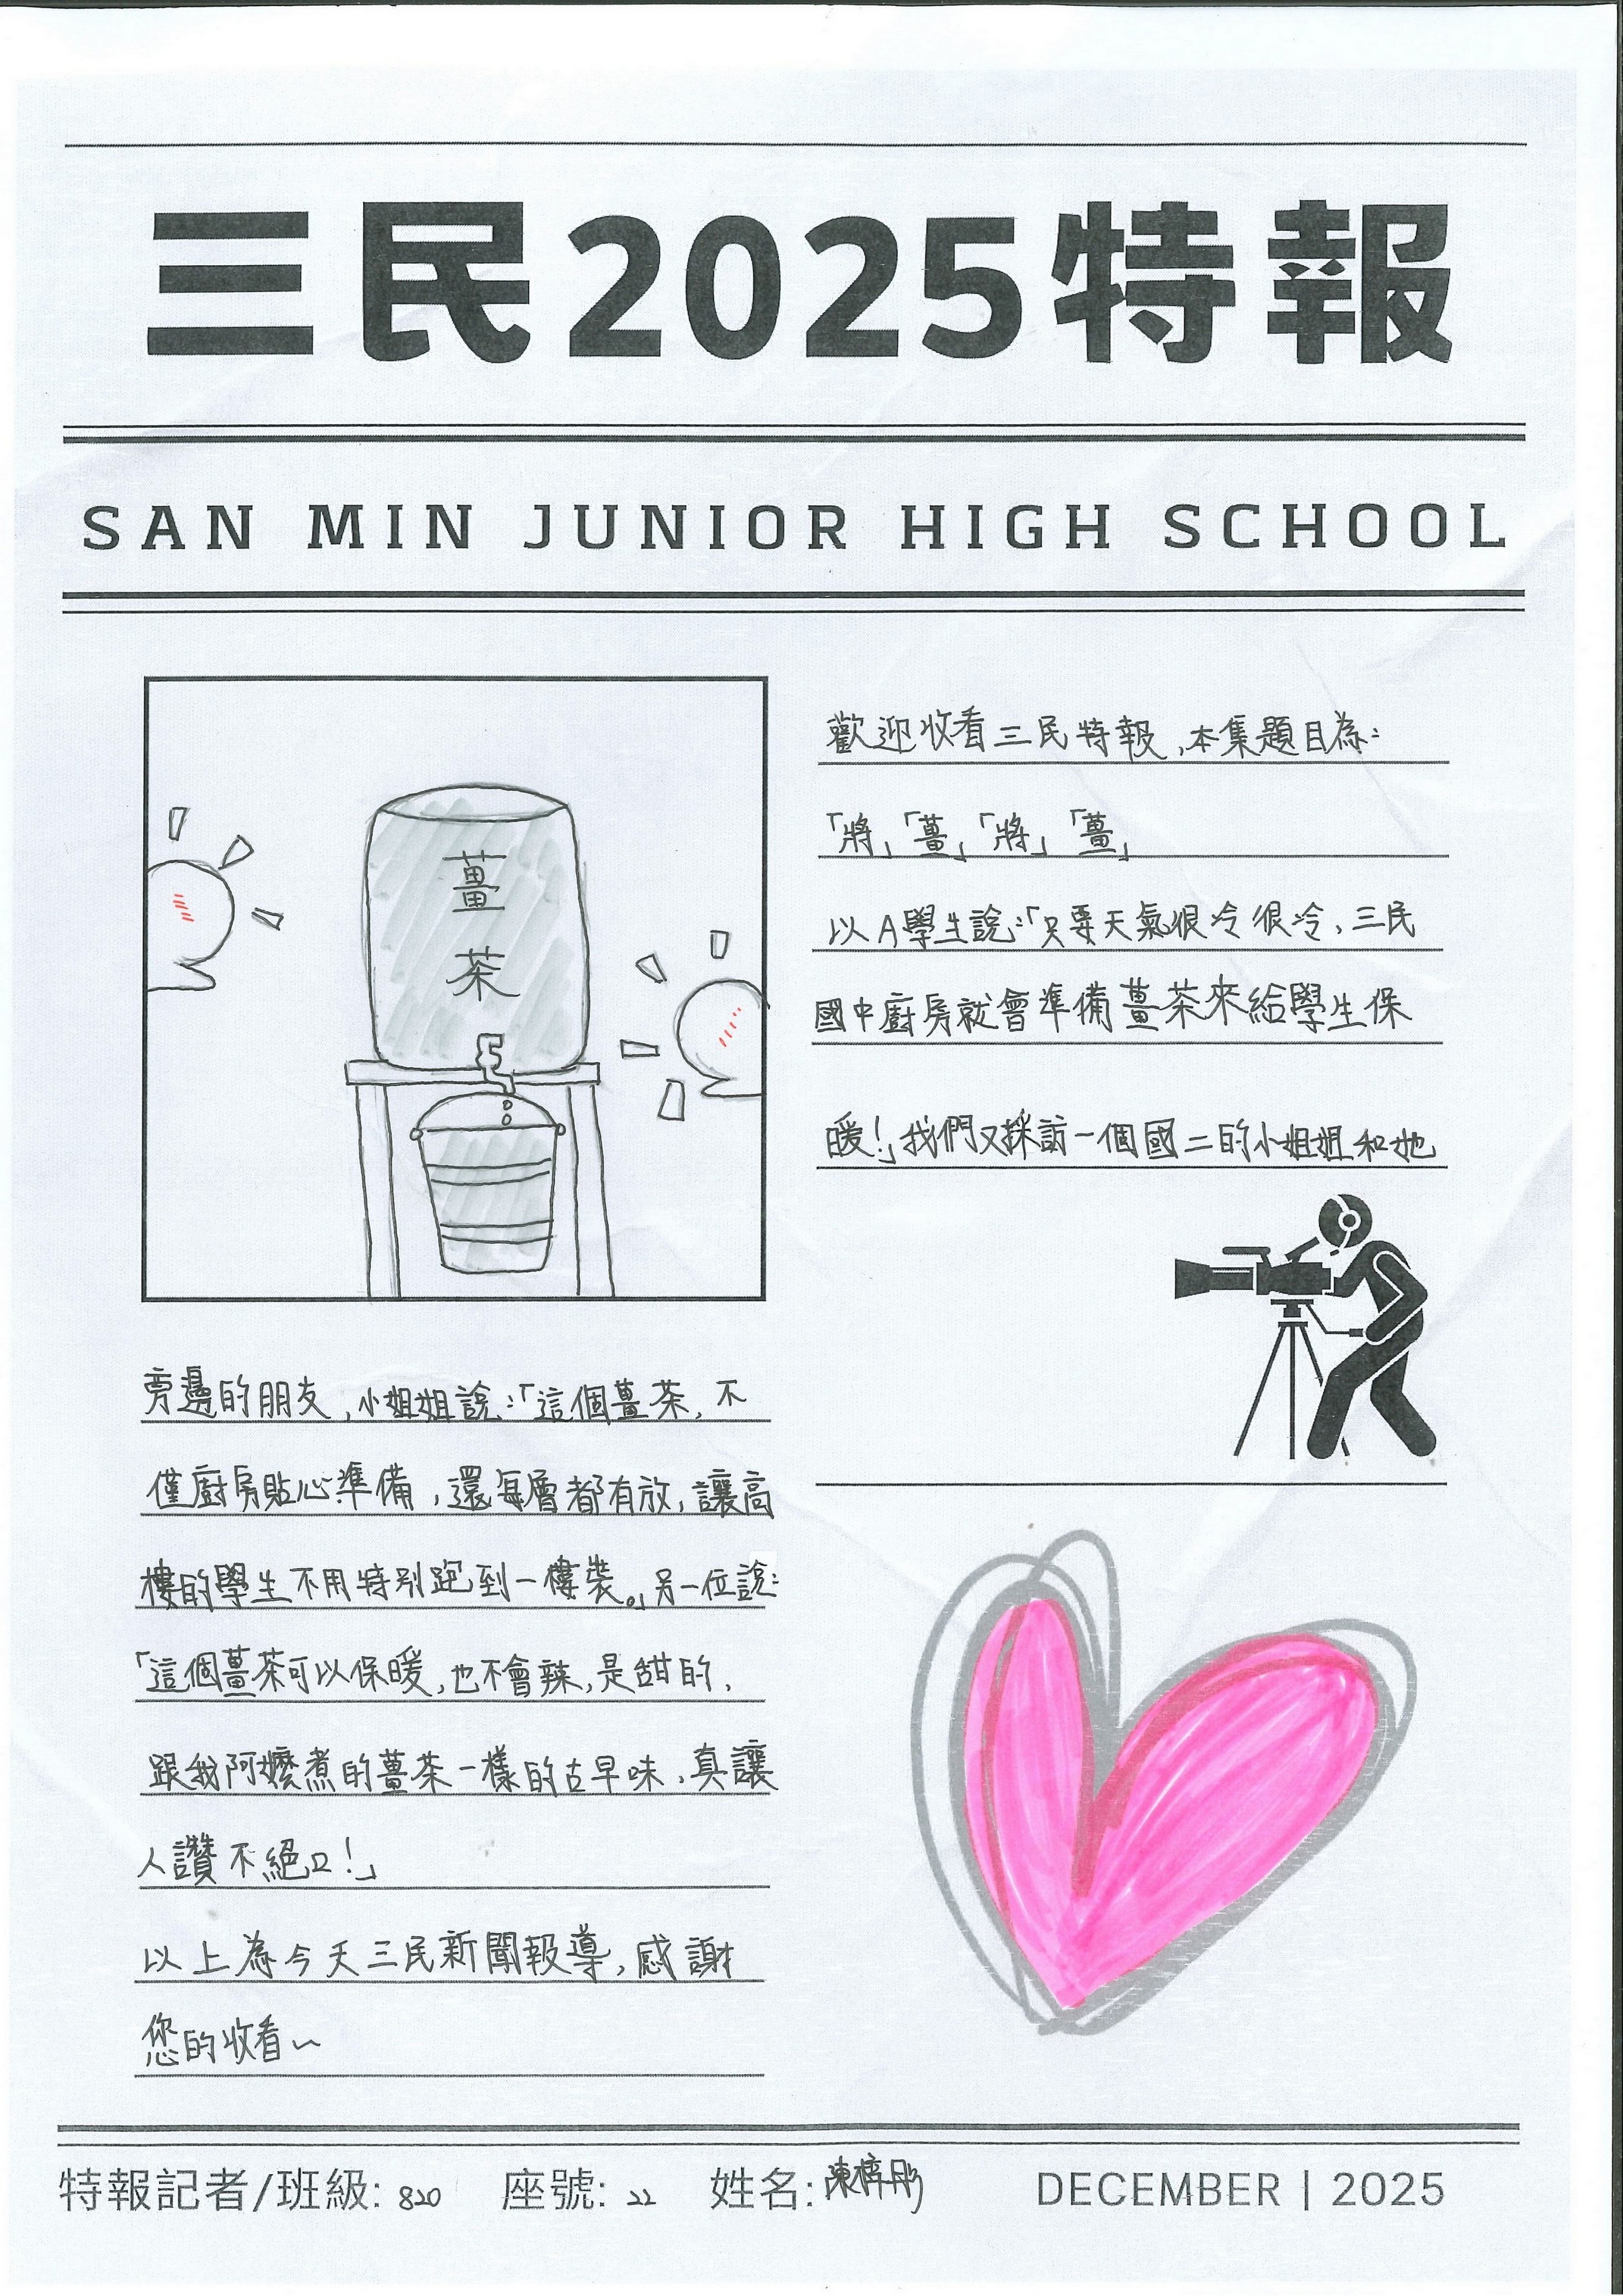 三民2025特報
SAN MIN JUNIOR HIGH SCHOOL
薑
茶
歡迎收看三民特報,本集題目為:
「將」「薑」「將」「薑」
以A學生說:「只要天氣很冷很冷,三民
國中廚房就會準備薑茶來給學生保
暖!」我們又採訪一個國二的小姐姐和她
旁邊的朋友,小姐姐說:「這個薑茶,不
僅廚房貼心準備,還每層都有放,讓高
樓的學生不用特別跑到一樓裝。」另一位說:
「這個薑茶可以保暖,也不會辣,是甜的,
跟我阿嬤煮的薑茶一樣的古早味,真讓
人讚不絕口!」
以上為今天三民新聞報導,感謝
您的收看~
特報記者/班級: 820 座號: 22 姓名: 陳梓彤 DECEMBER | 2025